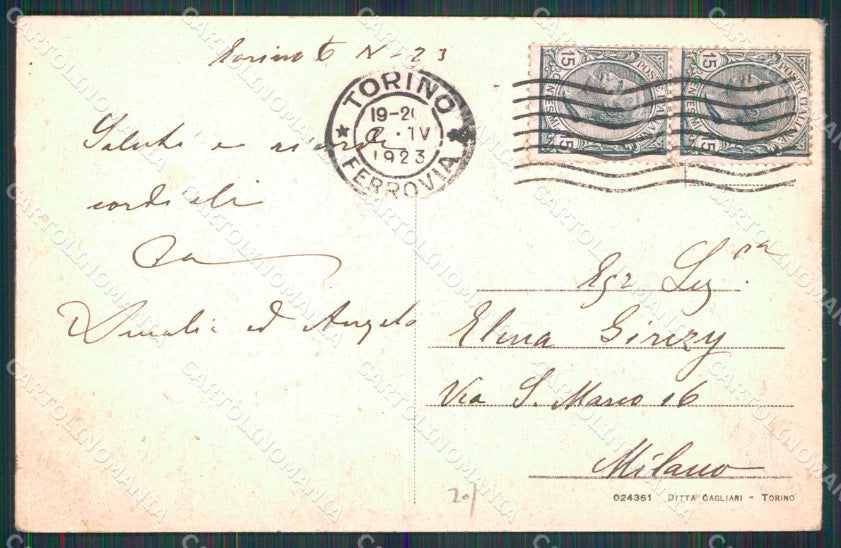 Torino 6 IV-23
Saluti e ricordi
cordiali
da
Amalia ed Angelo
TORINO
19-20
IV
1923
FERROVIA
15 POSTE ITALIANE 15
15 POSTE ITALIANE 15
Egr Sig.ra
Elena
Via S. Marco 16
Milano
024361 DITTA CAGLIARI - TORINO
20/
CARTOLINOMANIA